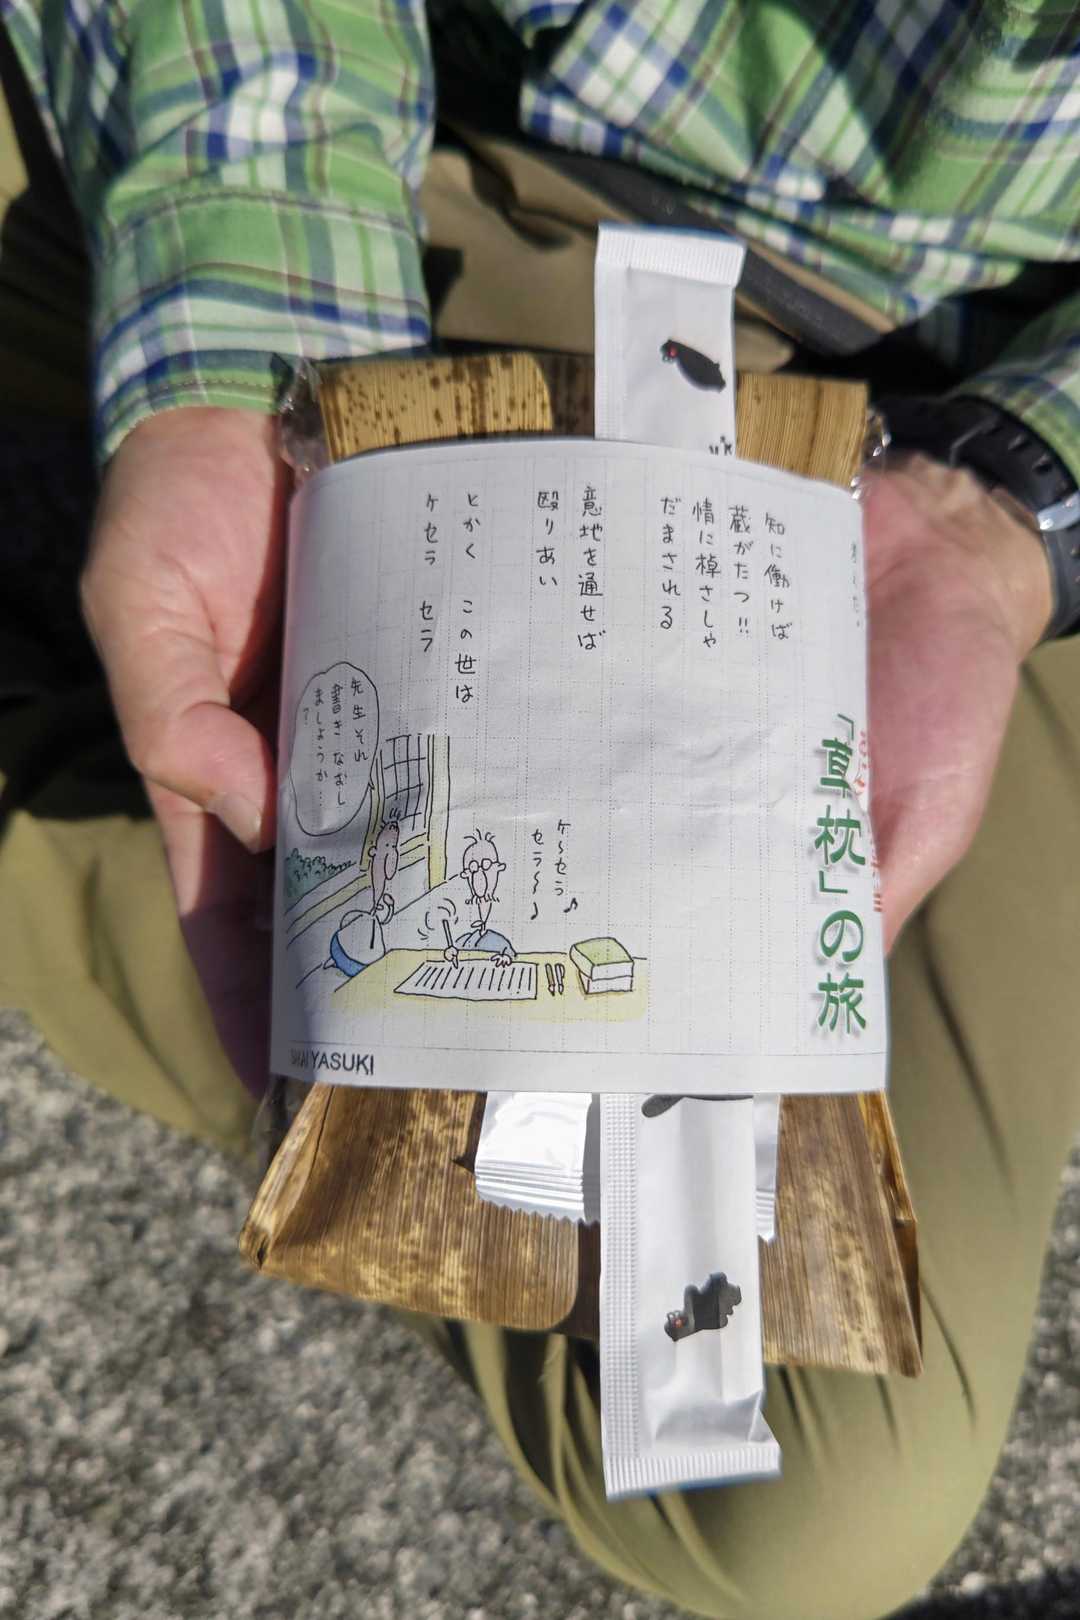 知に働けば
蔵がたつ!!
情に棹さしゃ
だまされる
意地を通せば
殴りあい
とかく この世は
ケセラ セラ
「草枕」の旅
ケ〜セラ
セラ〜〜♪
先生それ
書きなおし
ましょうか…
?
YASUKI